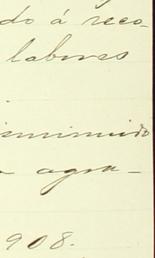 do á reco-
labores
isminuido
a agra-
908.